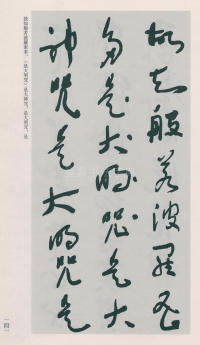 故知般若波羅蜜
多是大明咒是大
神咒是大明咒是
故知般若波羅蜜多。(是大明咒)是大神咒。是大明咒。是
一四